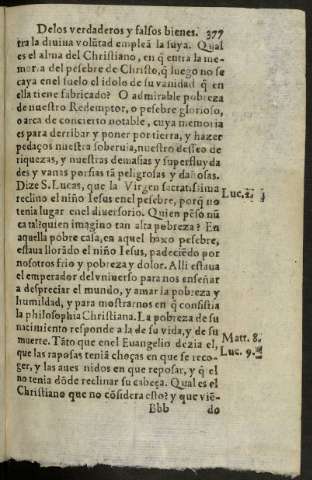 De los verdaderos y falsos bienes. 377
tra la diuina volũtad empleã la suya. Qual
es el alma del Christiano, en q̃ entra la me-
moria del pesebre de Christo, q̃ luego no se
caya en el suelo el idolo de su vanidad q̃ en
ella tiene fabricado? O admirable pobreza
de nuestro Redemptor, o pesebre glorioso,
o arca de concierto notable, cuya memoria
es para derribar y poner por tierra, y hazer
pedaços nuestra soberuia, nuestro desseo de
riquezas, y nuestras demasias y superfluyda
des y vanas porfias tã peligrosas y dañosas.
Dize S. Lucas, que la Virgen sacratissima
reclino el niño Iesus en el pesebre, porq̃ no
tenia lugar en el diuersorio. Quien pẽso nũ
ca tal? quien imagino tan alta pobreza? En
aquella pobre casa, en aquel baxo pesebre,
estaua llorãdo el niño Iesus, padeciẽdo por
nosotros frio y pobreza y dolor. Alli estaua
el emperador del vniuerso para nos enseñar
a despreciar el mundo, y amar la pobreza y
humildad, y para mostrarnos en q̃ consistia
la philosophia Christiana. La pobreza de su
nacimiento responde a la de su vida, y de su
muerte. Tãto que en el Euangelio dezia el,
que las raposas teniã choças en que se reco-
ger, y las aues nidos en que reposar, y q̃ el
no tenia dõde reclinar su cabeça. Qual es el
Christiano que no cõsidera esto? y que viẽ-
Bbb do
Luc. 2.
Matt. 8.
Luc. 9.